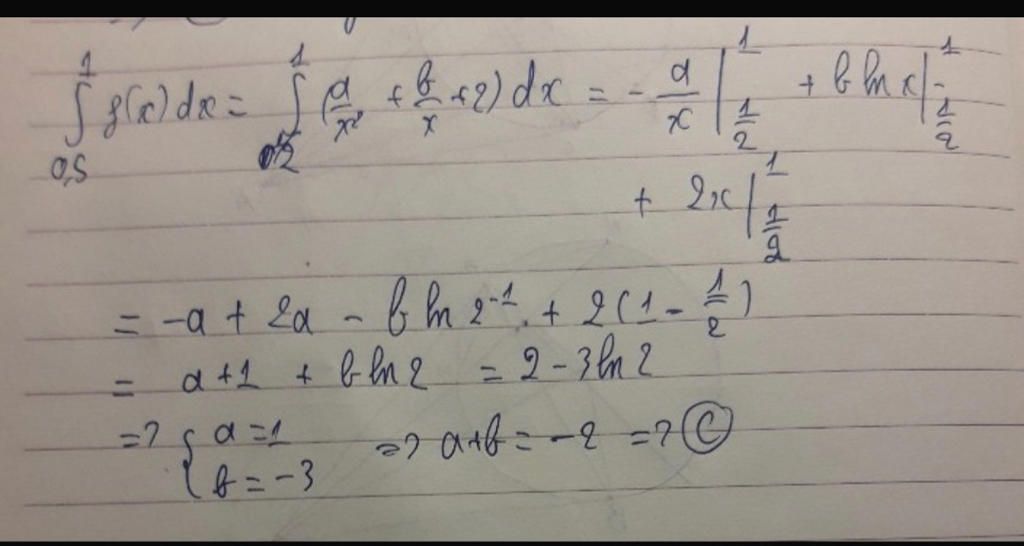 ∫_{0,5}^{1} f(x) dx = ∫_{1/2}^{1} (a/x² + b/x + 2) dx = - a/x |_{1/2}^{1} + b ln x |_{1/2}^{1}
+ 2x |_{1/2}^{1}
= -a + 2a - b ln 2⁻¹ + 2(1 - 1/2)
= a + 1 + b ln 2 = 2 - 3 ln 2
=> { a = 1 => a+b = -2 => Ⓒ
b = -3